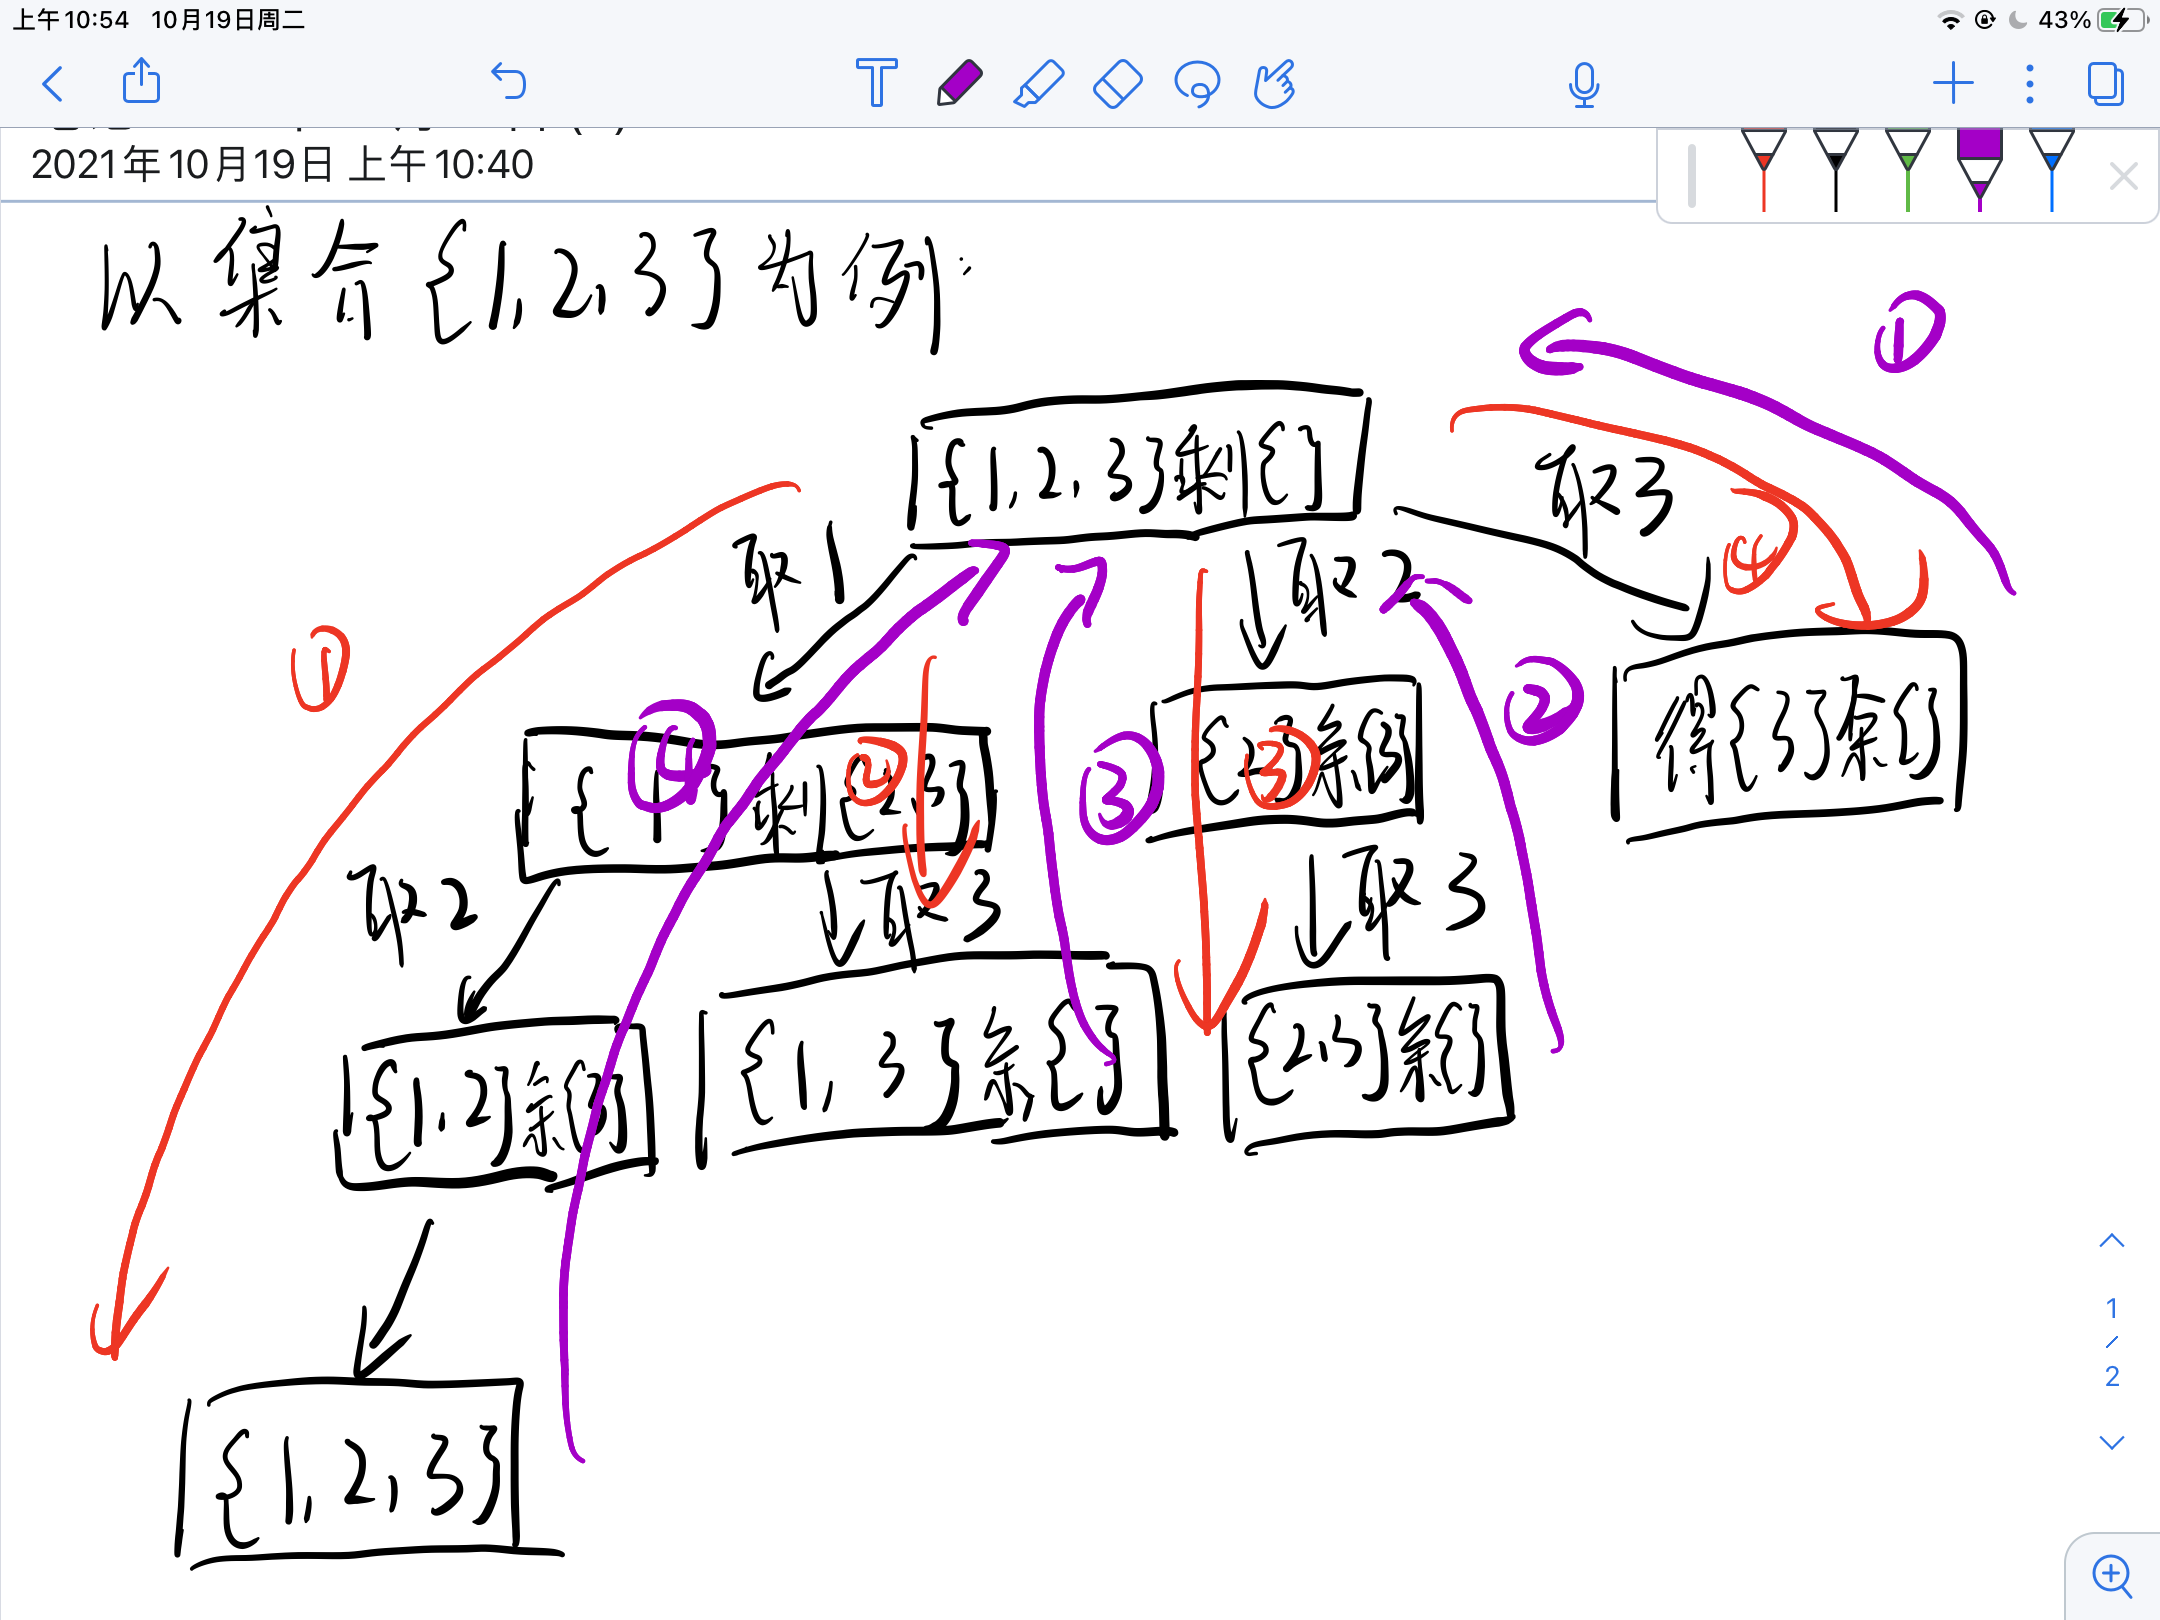 上午10:54 10月19日周二
43%
2021年10月19日 上午10:40
以集合{1,2,3}为例:
①
{1,2,3}剩{}
取3
取1
取2
④
①
②
{1}剩{2,3}
④
②
{2}余{3}
③
③
得{3}余{}
取2
取3
取3
{1,2}余{3}
{1,3}余{}
{2,3}余{}
{1,2,3}
1
/
2